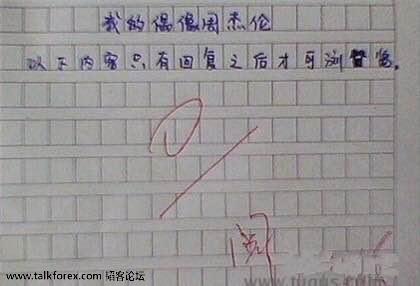 我的偶像周杰伦
以下内容只有回复之后才可浏览。
0
阅
www.talkforex.com 韬客论坛